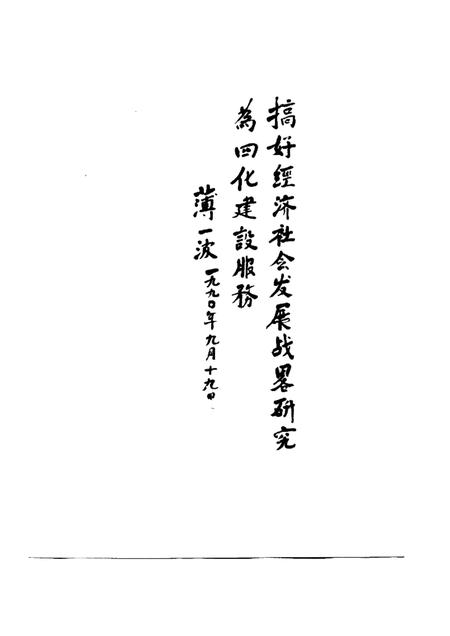 搞好經济社会发展战畧研究
為四化建設服務
薄一波 一九九〇年九月十九日